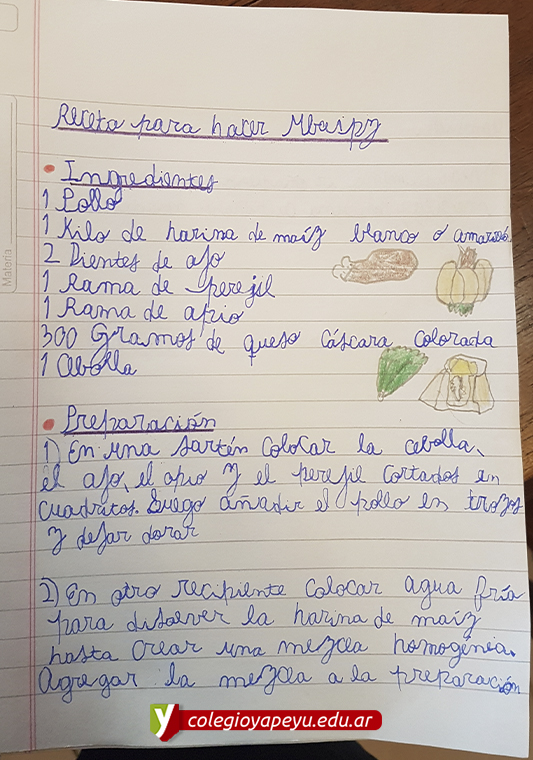 Receta para hacer Mbaipy
• Ingredientes
1 Pollo
1 Kilo de harina de maíz blanco o amarillo
2 Dientes de ajo
1 Rama de perejil
1 Rama de apio
300 Gramos de queso Cáscara colorada
1 Cebolla
• Preparación
1) En una sartén colocar la cebolla,
el ajo, el apio y el perejil cortados en
cuadritos. Luego añadir el pollo en trozos
y dejar dorar
2) En otro recipiente colocar agua fría
para disolver la harina de maíz
hasta crear una mezcla homogénia.
Agregar la mezcla a la preparación
Materia
y colegioyapeyu.edu.ar